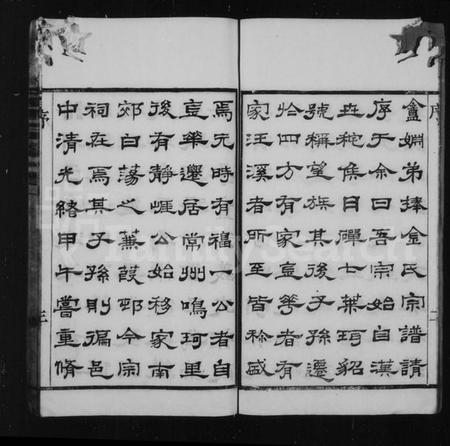 序
二
盦姻弟捧金氏宗譜請
序于余曰吾宗始自漢
世秺侯日磾七葉珥貂
號稱望族其後子孫遷
四方有家荳華者有
家汪溪者所至皆稱盛
焉元時有福一公者自
荳華遷居常州鳴珂里
後有靜崕公始移家南
郊白蕩之蒹葭邨今宗
祠在焉其子孫則徧邑
中清光緒甲午嘗重脩
序
三